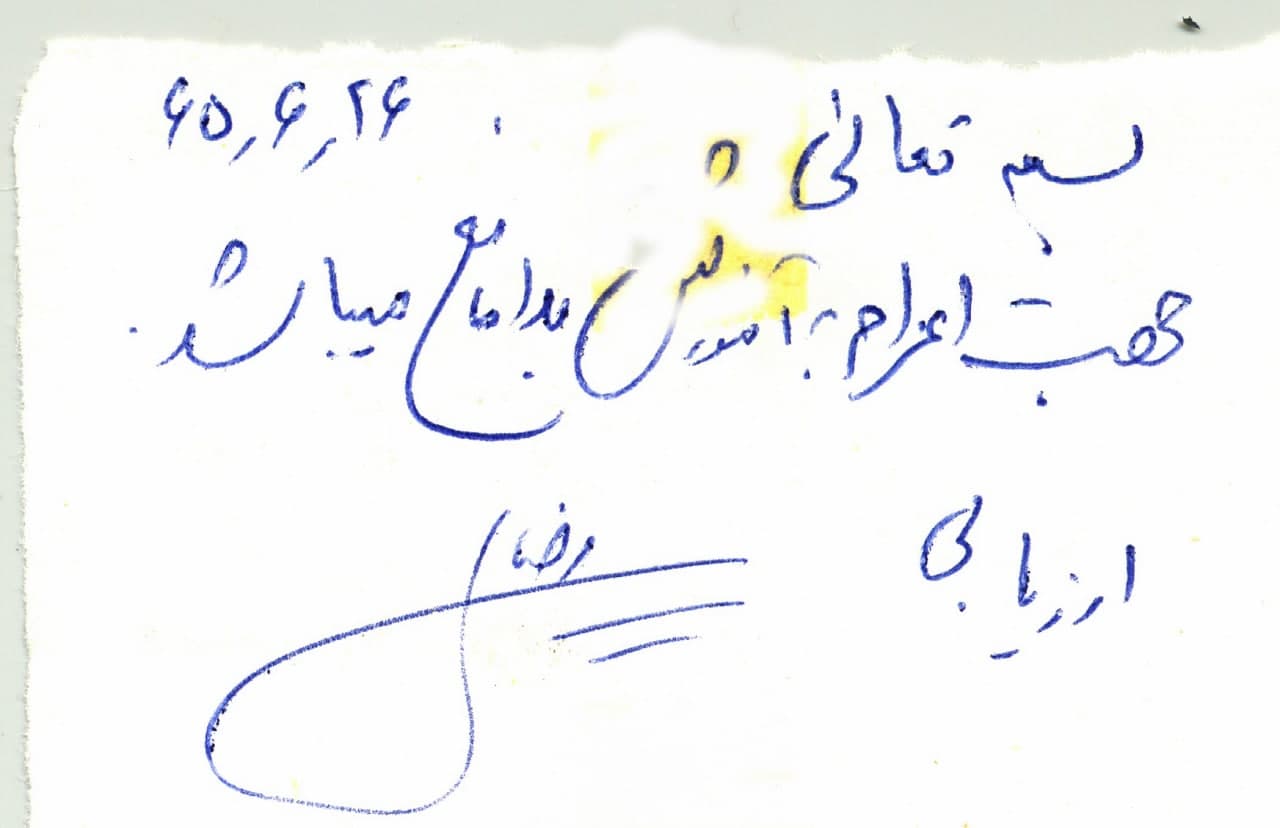 بسم تعالی ۶۵٫۶٫۲۶
جهت اعزام به آموزش بلامانع میباشد.
ارزیابی
رضا